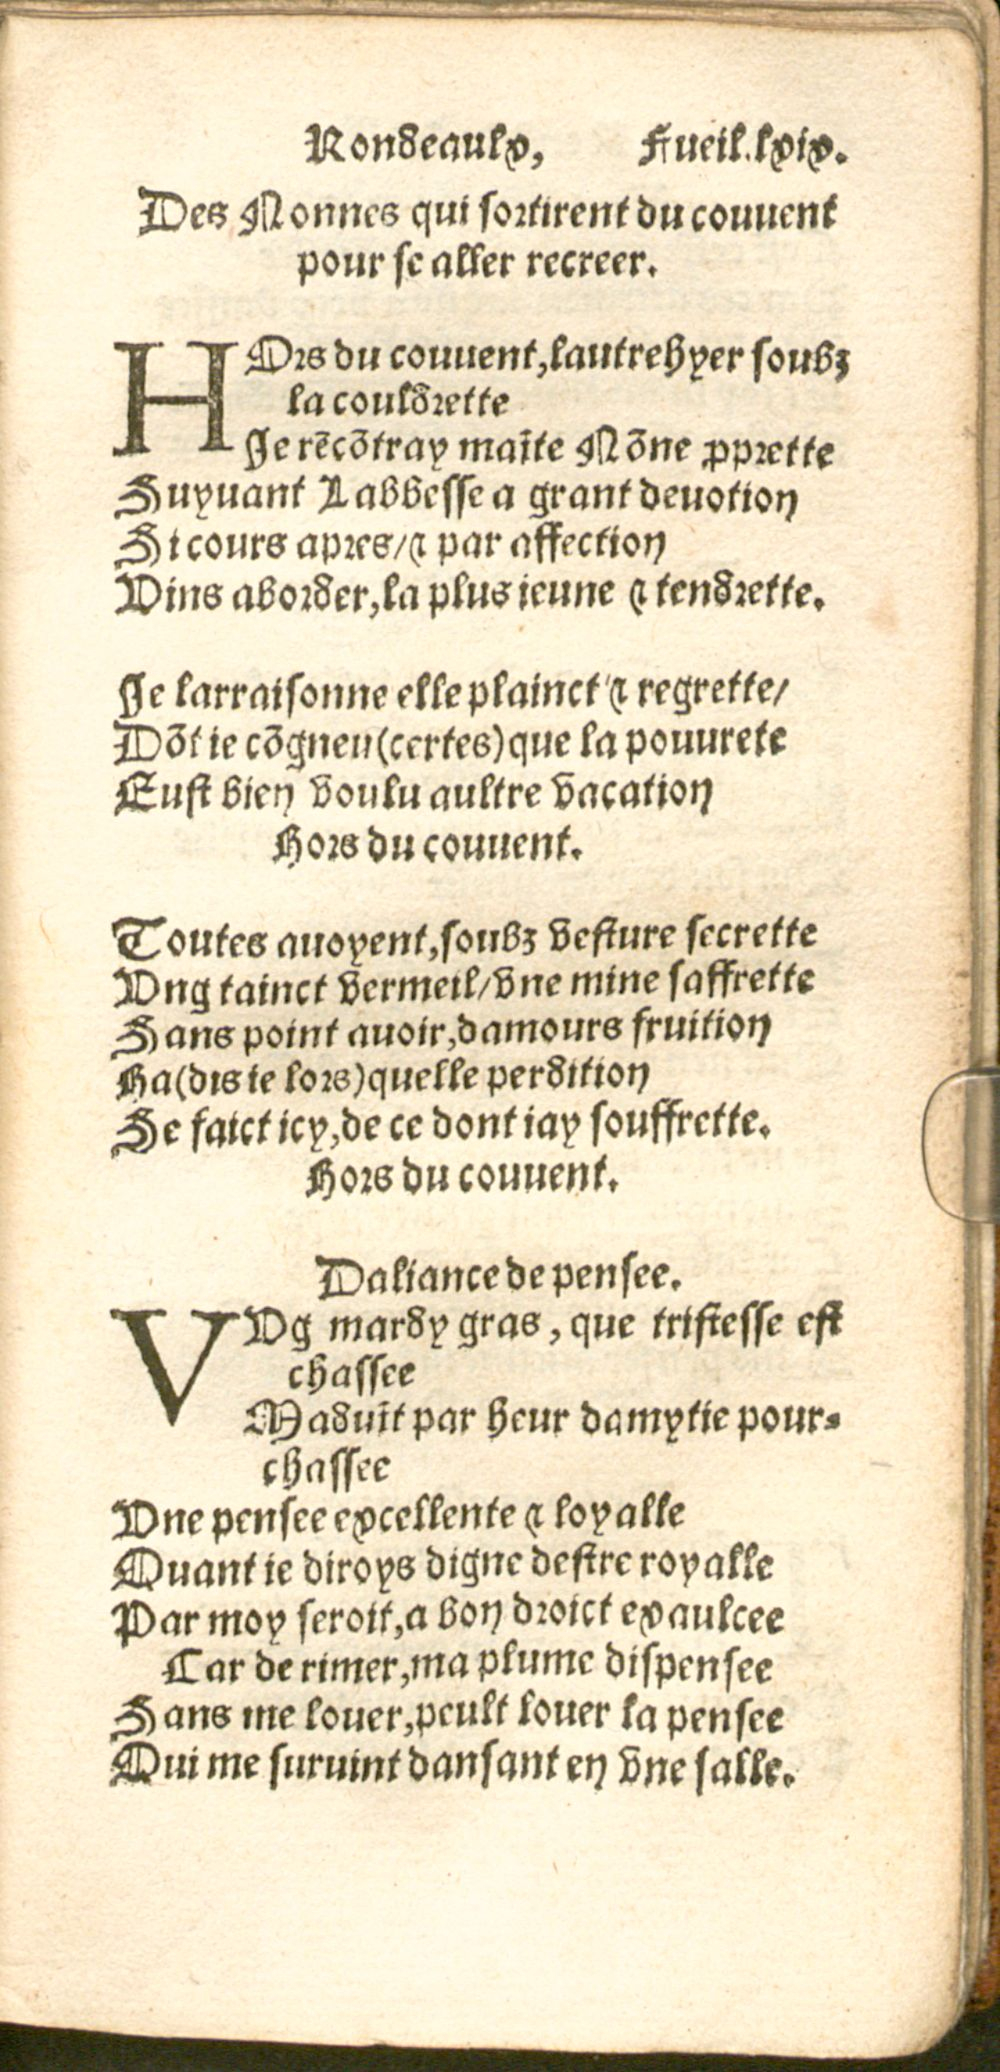 Rondeaulx, Fueil.lxix.
Des Nonnes qui sortirent du couuent
pour se aller recreer.
HOrs du couuent,lautrehyer soubz
la couldrette
Je rēcōtray maīte Nōne ꝓprette
Suyuant Labbesse a grant deuotion
Si cours apres/⁊ par affection
Vins aborder,la plus ieune ⁊ tendrette.
Je larraisonne elle plainct ⁊ regrette/
Dōt ie cōgneu(certes)que la pouurete
Eust bien voulu aultre vacation
Hors du couuent.
Toutes auoyent,soubz vesture secrette
Vng tainct vermeil/vne mine saffrette
Sans point auoir,damours fruition
Ha(dis ie lors)quelle perdition
Se faict icy,de ce dont iay souffrette.
Hors du couuent.
Daliance de pensee.
VVg mardy gras, que tristesse est
chassee
Maduīt par heur damytie pour-
chassee
Vne pensee excellente ⁊ loyalle
Quant ie diroys digne destre royalle
Par moy seroit,a bon droict exaulcee
Car de rimer,ma plume dispensee
Sans me louer,peult louer la pensee
Qui me suruint dansant en vne salle.